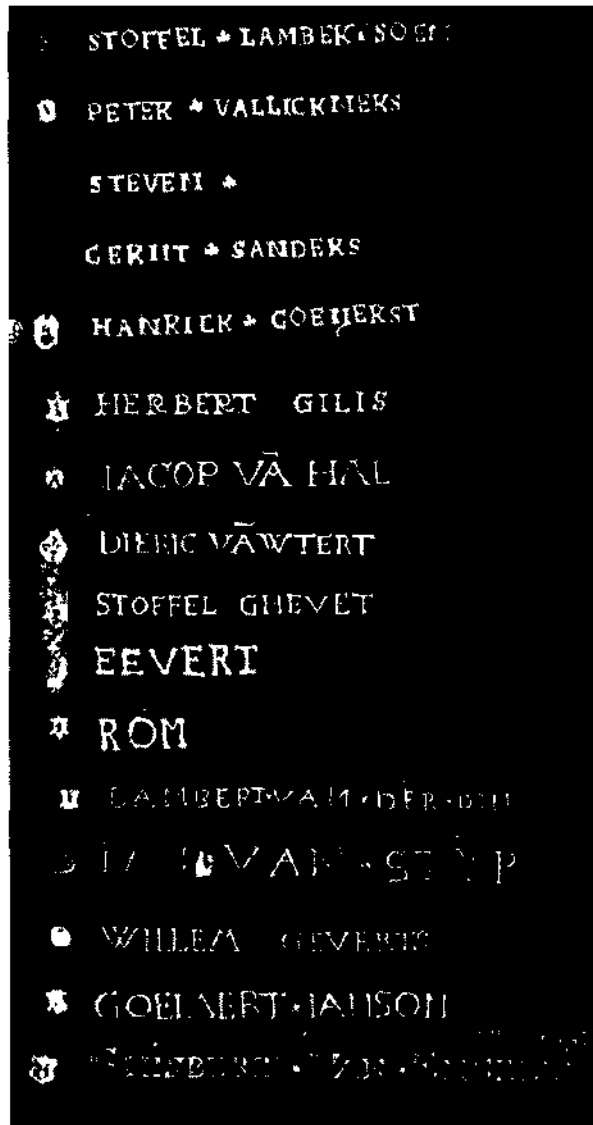 STOFFEL * LAMBERTSOEN
PETER * VALLICKNERS
STEVEN *
GERIIT * SANDERS
HANRICK * GOEIJERST
HERBERT GILIS
IACOP VĀ HAL
DIERIC VĀWTERT
STOFFEL GHEVET
EEVERT
ROM
LAMBERT·VAN·DER
VAN
WILLEM GEVERTS
GOELAERT·IANSON